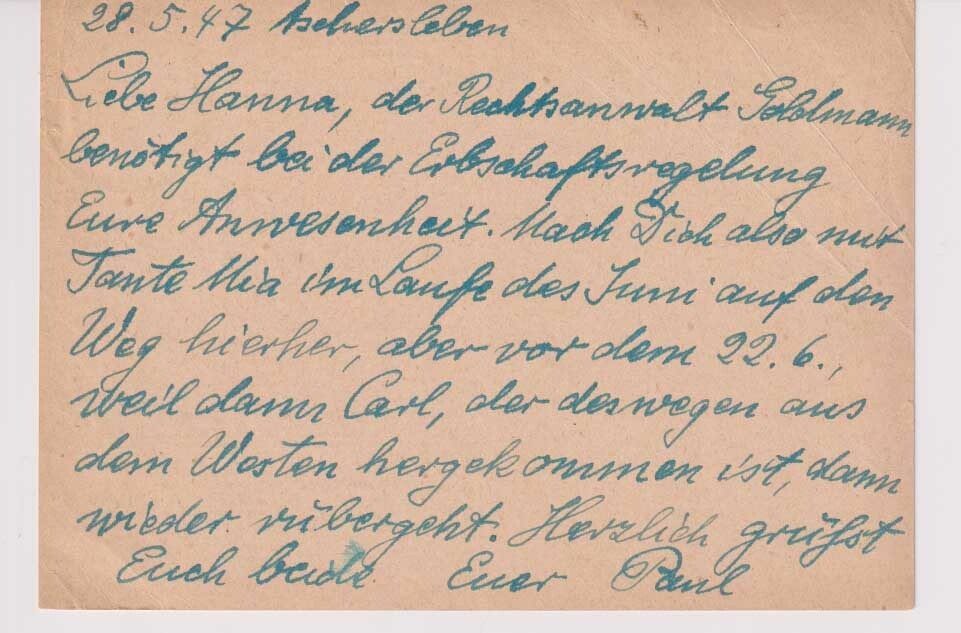 28.5.47 Aschersleben
Liebe Hanna, der Rechtsanwalt Goldmann
benötigt bei der Erbschaftsregelung
Eure Anwesenheit. Mach Dich also mit
Tante Mia im Laufe des Juni auf den
Weg hierher, aber vor dem 22.6.,
weil dann Carl, der deswegen aus
dem Westen hergekommen ist, dann
wieder rübergeht. Herzlich grüßt
Euch beide Euer Paul